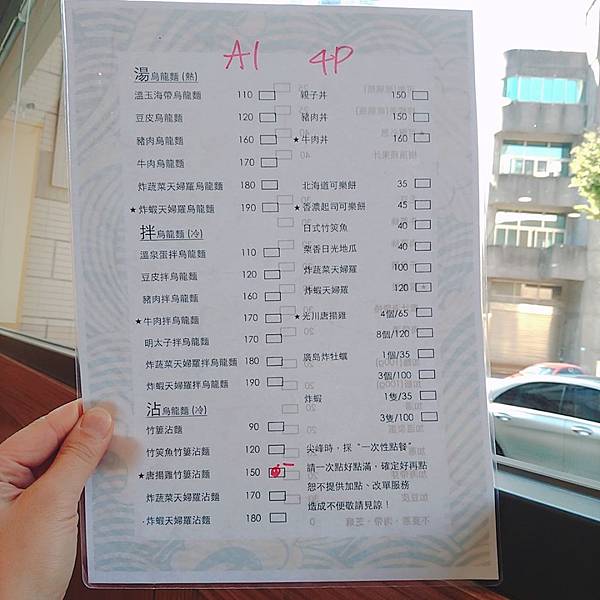 A1 4P
湯烏龍麵 (熱)
溫玉海帶烏龍麵 110
豆皮烏龍麵 120
豬肉烏龍麵 160
牛肉烏龍麵 170
炸蔬菜天婦羅烏龍麵 180
★炸蝦天婦羅烏龍麵 190
拌烏龍麵 (冷)
溫泉蛋拌烏龍麵 110
豆皮拌烏龍麵 120
豬肉拌烏龍麵 160
★牛肉拌烏龍麵 170
明太子拌烏龍麵
炸蔬菜天婦羅拌烏龍麵 180
炸蝦天婦羅拌烏龍麵 190
沾烏龍麵 (冷)
竹簍沾麵 90
竹筴魚竹簍沾麵 120
★唐揚雞竹簍沾麵 150
炸蔬菜天婦羅沾麵 170
炸蝦天婦羅沾麵 180
親子丼 150
豬肉丼 150
★牛肉丼 160
北海道可樂餅 35
★香濃起司可樂餅 45
日式竹筴魚 40
栗香日光地瓜 40
炸蔬菜天婦羅 100
炸蝦天婦羅 120
★光川唐揚雞 4個/65
8個/120
廣島炸牡蠣 1個/35
3個/100
炸蝦 1隻/35
3隻/100
尖峰時，採“一次性點餐”
請一次點好點滿，確定好再點
恕不提供加點、改單服務
造成不便敬請見諒！